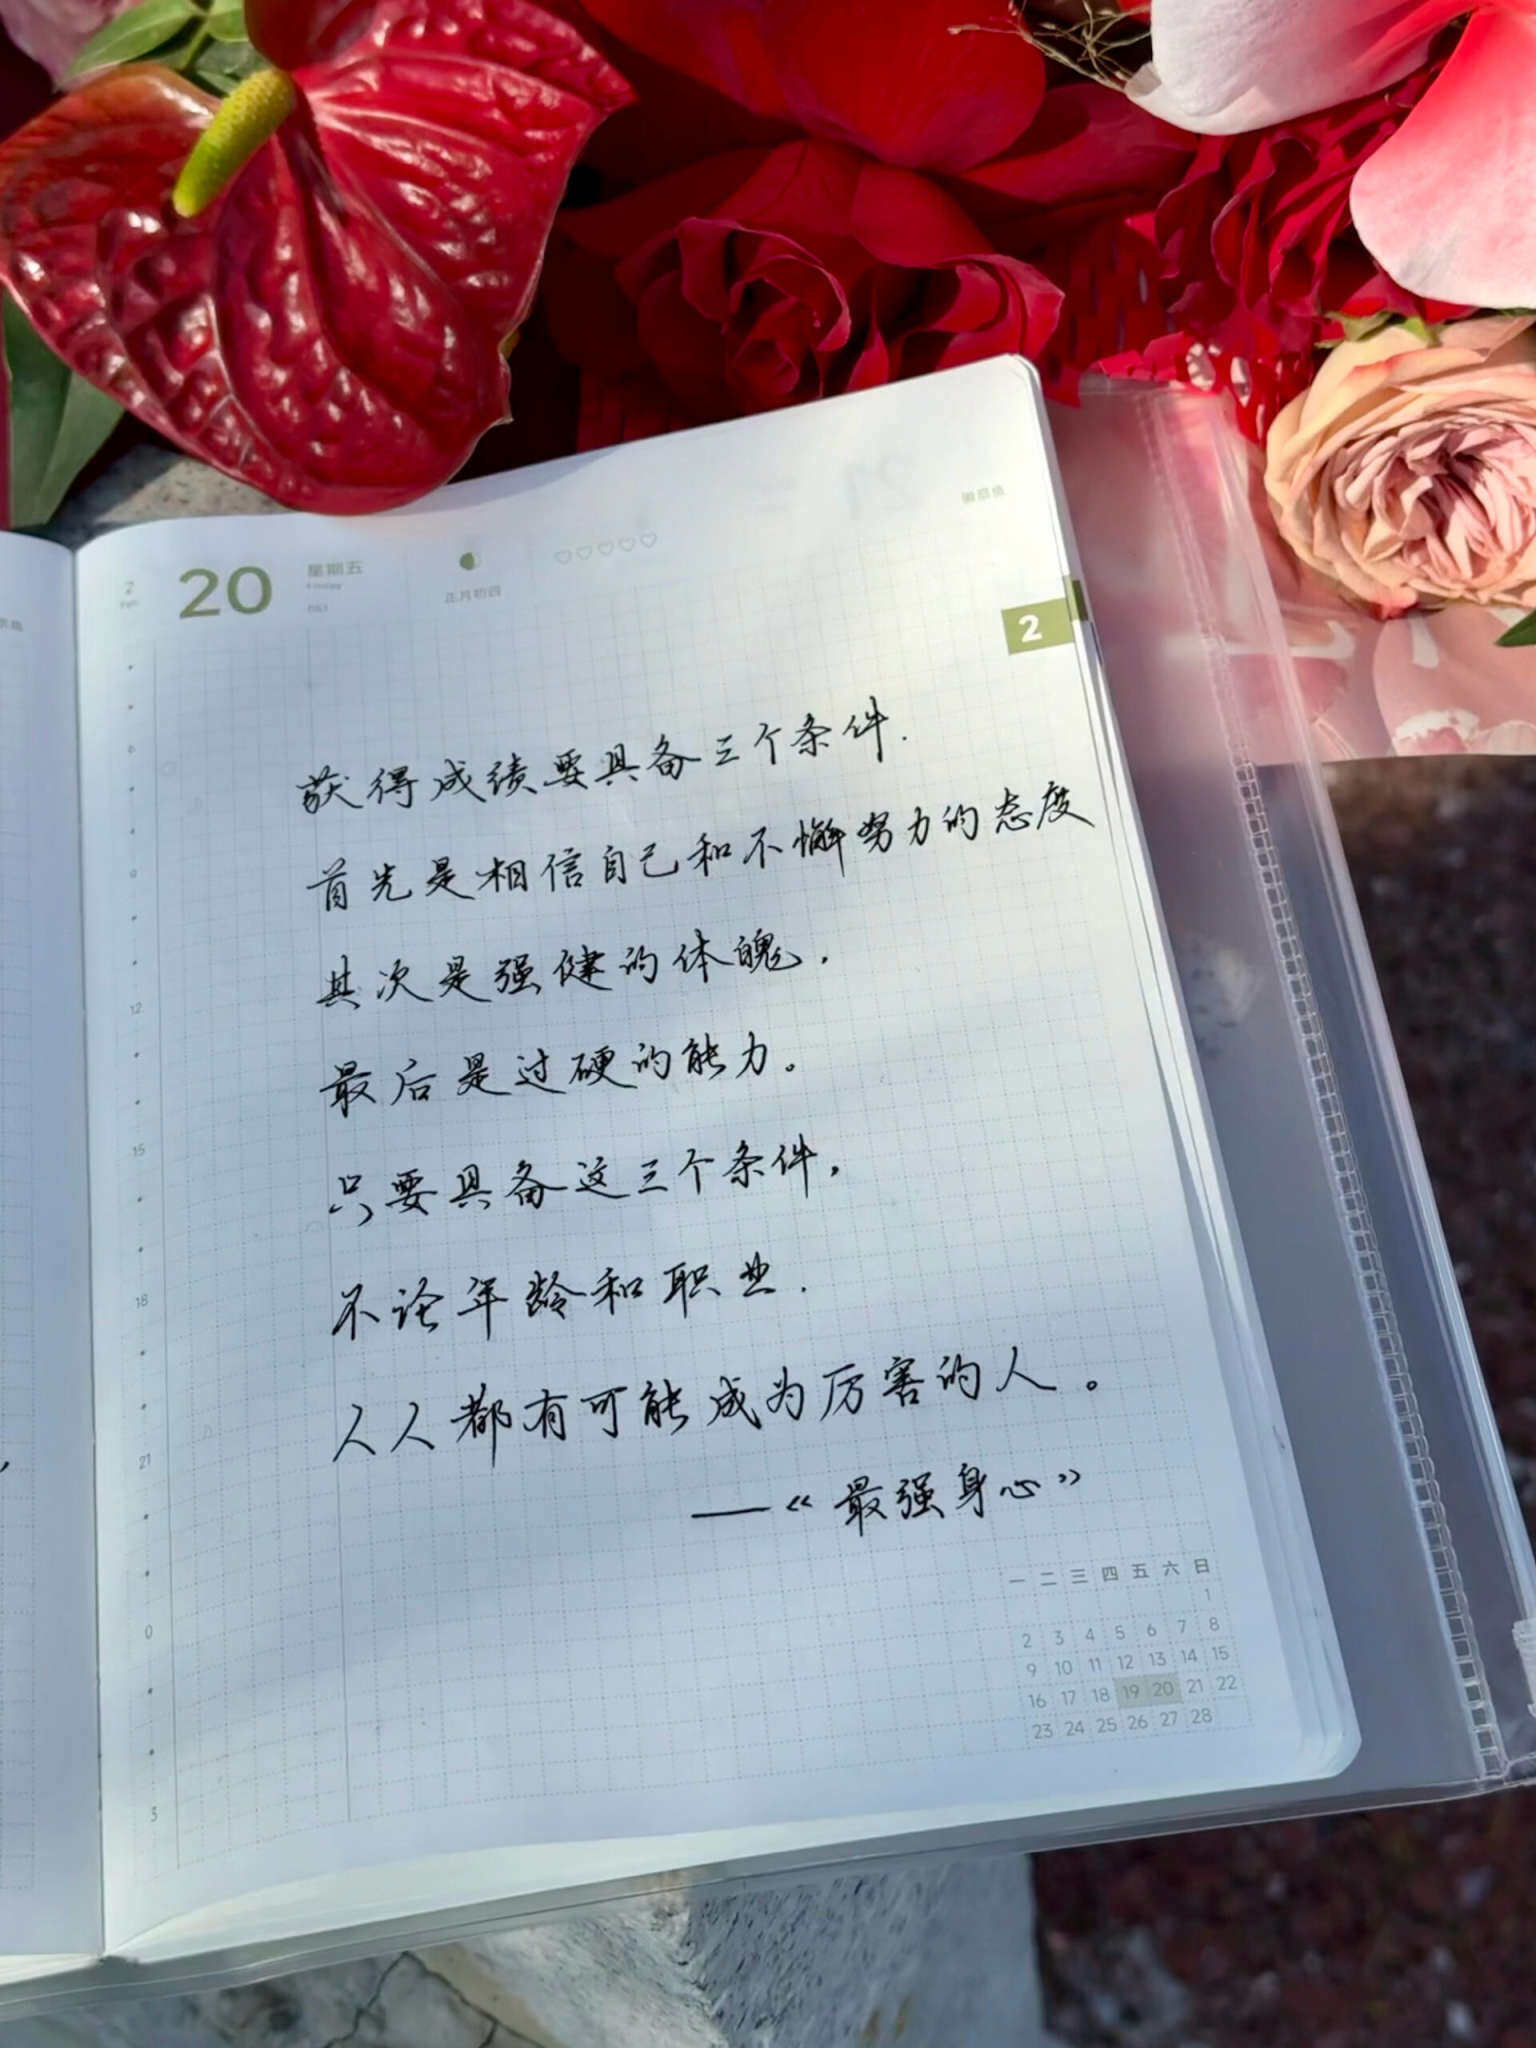 2
Feb
20
星期五
Friday
051
正月初四
2
获得成绩要具备三个条件.
首先是相信自己和不懈努力的态度
其次是强健的体魄.
最后是过硬的能力。
只要具备这三个条件,
不论年龄和职业.
人人都有可能成为厉害的人。
—《最强身心》
9
12
15
18
21
0
3
一 二 三 四 五 六 日
1
2 3 4 5 6 7 8
9 10 11 12 13 14 15
16 17 18 19 20 21 22
23 24 25 26 27 28